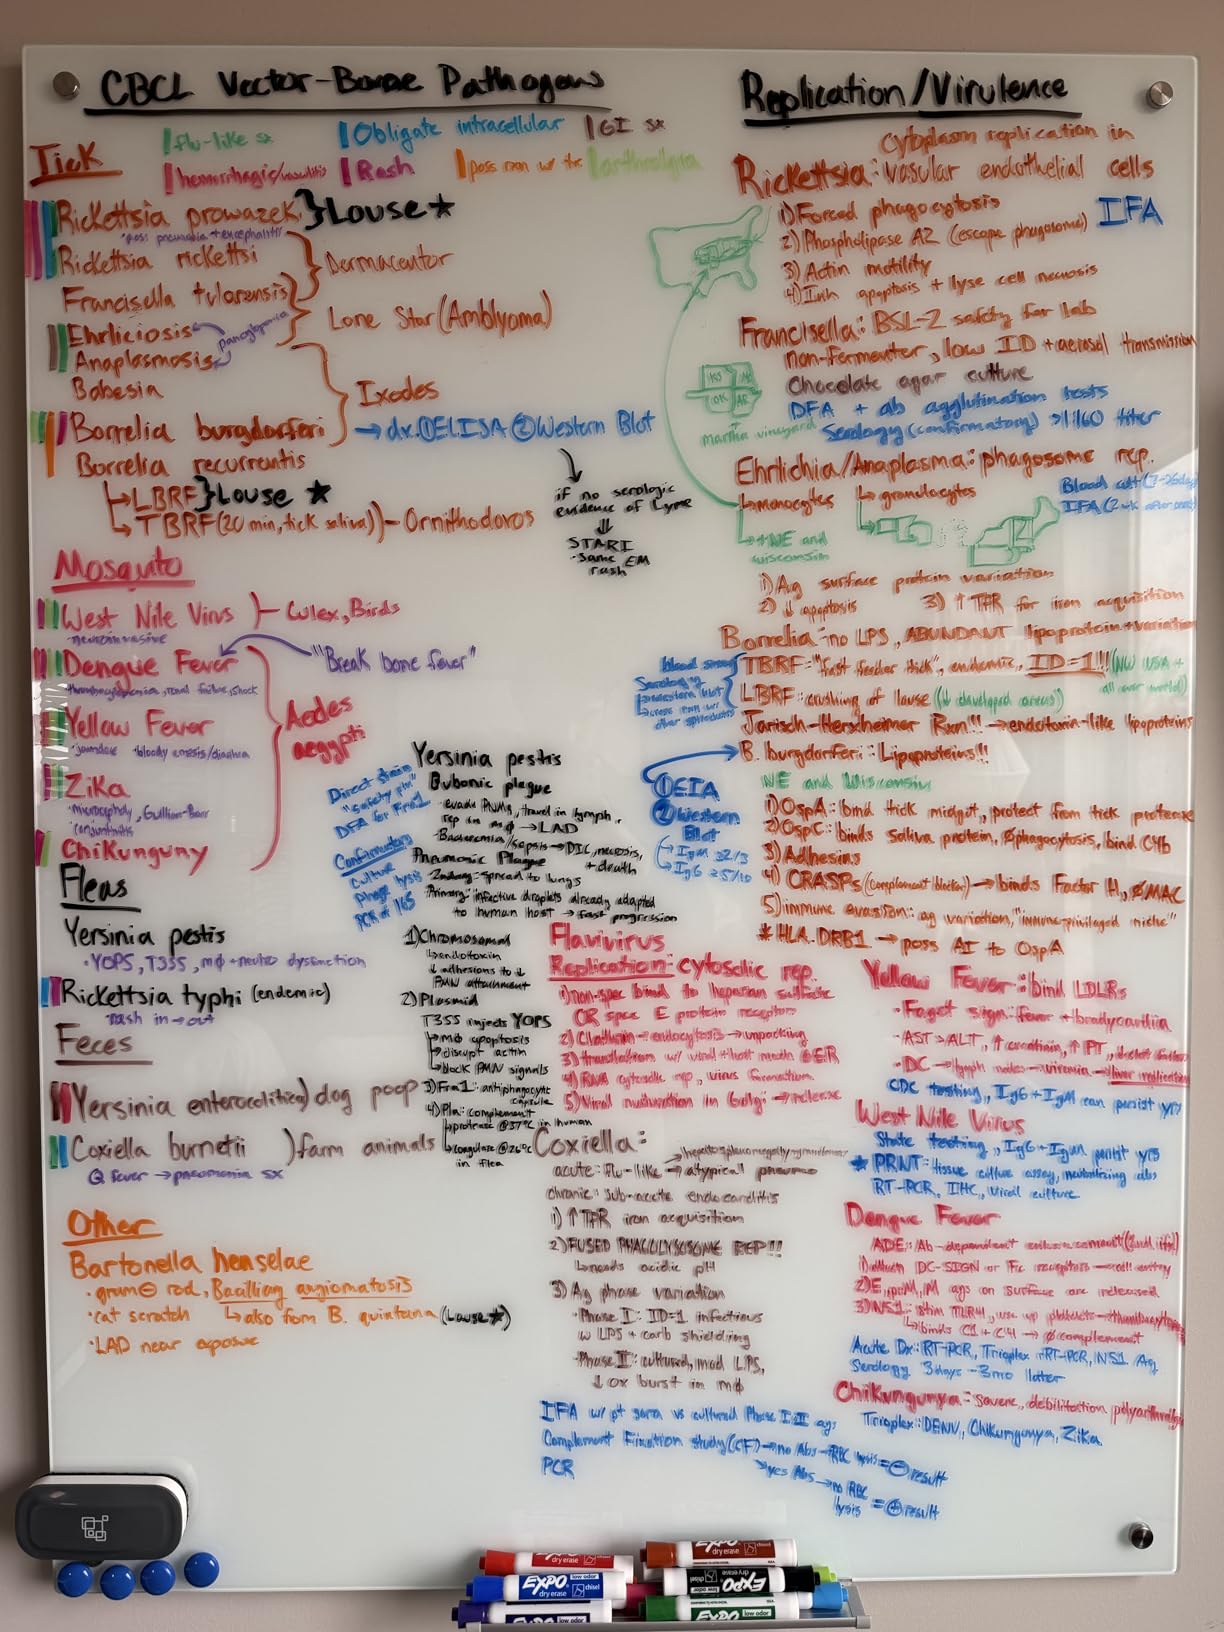 CBCL Vector-Borne Pathogens
flu-like sx
Obligate intracellular
GI sx
hemorrhagic/vasculitis
Rash
poss rxn w/ tx
arthralgia
Tick
Rickettsia prowazeki } Louse ★
poss pneumonia + encephalitis
Rickettsia rickettsi
Dermacentor
Francisella tularensis
Lone Star (Amblyoma)
Ehrliciosis
pancytopenia
Anaplasmosis
Babesia
Ixodes
Borrelia burgdorferi
→ dx. ① ELISA ② Western Blot
Borrelia recurrentis
↳ LBRF } Louse ★
↳ TBRF (20 min, tick saliva) - Ornithodoros
if no serologic
evidence of Lyme
⇓
STARI
-same EM
rash
Mosquito
West Nile Virus } Culex, Birds
·neuroinvasive
Dengue Fever
"Break bone fever"
thrombocytopenia, renal failure, shock
Yellow Fever
·jaundice ·bloody emesis/diarrhea
Aedes
aegypti
Zika
·microcephaly, Gullian-Barr
·conjunctivitis
Chikunguny
Fleas
Yersinia pestis
·YOPS, T3SS, mø + neutro dysfunction
Rickettsia typhi (endemic)
rash in → out
Feces
Yersinia enterocolitica) dog poop
Coxiella burnetii ) farm animals
Q fever → pneumonia sx
Other
Bartonella henselae
·gram ⊖ rod, Bacillary angiomatosis
·cat scratch ↳ also from B. quintana (Louse ★)
·LAD near exposure
Yersinia pestis
Bubonic plague
·evade PMNs, travel in lymph,
rep in mø → LAD
·Bacteremia/sepsis → DIC, necrosis,
+ death
Pneumonic Plague
2ndary: spread to lungs
Primary: infective droplets already adapted
to human host → fast progression
Direct stain
"safety pin"
DFA for Fra1
Confirmatory
culture
phage lysis
PCR of 16S
1) Chromosomal
↳ endotoxin
↓ adhesions to ↓
PMN attachment
2) Plasmid
T3SS injects YOPS
↳ mø apoptosis
↳ disrupt actin
↳ block PMN signals
3) Fra1: antiphagocytic
capsule
4) Pla: complement
↳ protease @37°C in human
↳ coagulase @26°C
in flea
Replication/Virulence
cytoplasm replication in
Rickettsia: vasular endothelial cells
1) Forced phagocytosis
IFA
2) Phospholipase A2 (escape phagosome)
3) Actin motility
4) Inh apoptosis + lyse cell necrosis
Francisella: BSL-2 safety for lab
non-fermenter, low ID + aerosol transmission
Chocolate agar culture
DFA + ab agglutination tests
Serology (confirmatory) >1:160 titer
KS
OK
AR
martha vineyard
Ehrlichia/Anaplasma: phagosome rep.
↳ monocytes
↳ granulocytes
IFA
↳ NE and
wisconsin
1) Ag surface protein variation
2) ↓ apoptosis
3) ↑ TFR for iron acquisition
Borrelia: no LPS, ABUNDANT lipoprotein + variation
blood smear
Serology
↳ western blot
↳ cross rxn w/
other spirochetes
TBRF: "fast feeder tick", endemic, ID=1!!! (NW USA +
all over world)
LBRF: crushing of louse (↓ developed areas)
Jarisch-Herxheimer Rxn!!! → endotoxin-like lipoproteins
B. burgdorferi: Lipoproteins!!
① EIA
② Western
Blot
↳ IgM ≥2/3
↳ IgG ≥5/10
NE and Wisconsin
1) OspA: bind tick midgut, protect from tick protease
2) OspC: binds saliva protein, ø phagocytosis, bind C4b
3) Adhesins
4) CRASPs (complement blocker) → binds Factor H, ø MAC
5) immune evasion: ag variation, "immune-privileged niche"
* HLA-DRB1 → poss AI to OspA
Flavivirus
Replication: cytosolic rep.
1) non-spec bind to heparan sulfate
OR spec E protein receptors
2) Clathrin → endocytosis → unpacking
3) translation w/ viral + host mech @ER
4) RNA cytosolic rep, virus formation
5) Viral maturation in Golgi → release
Coxiella:
hepatosplenomegaly/granulomas
acute: flu-like → atypical pneumo
chronic: sub-acute endocarditis
1) ↑ TFR iron acquisition
2) FUSED PHAGOLYSOSOME REP!!!
↳ needs acidic pH
3) Ag phase variation
·Phase I: ID=1 infectious
w LPS + carb shielding
·Phase II: cultured, mod LPS,
↓ ox burst in mø
IFA w/ pt sera vs cultured Phase I:II ag,
Complement Fixation study (CF) → no Abs → RBC lysis = ⊖ result
↘ yes Abs → no RBC
lysis = ⊕ result
PCR
Yellow Fever: bind LDLRs
·Faget sign: fever + bradycardia
·AST > ALT, ↑ creatinin, ↑ PT,
·DC → lymph nodes → viremia → liver replication
CDC testing, IgG + IgM can persist yrs
West Nile Virus
State testing, IgG + IgM persist yrs
* PRNT: tissue culture assay, neutralizing abs
RT-PCR, IHC, Viral culture
Dengue Fever
ADE: Ab-dependent enhancement (2nd inf)
1) attach DC-SIGN or Fc receptors → cell entry
2) E, prM, M ags on surface are released
3) NS1: stim TLR4, use up platelets → thrombocytopenia
↳ binds C1 + C4 → ø complement
Acute Dx: RT-PCR, Trioplex rRT-PCR, NS1 Ag
Serology 3days - 3mo latter
Chikungunya: severe, debilitation polyarthralgia
Trioplex: DENV, Chikungunya, Zika
EXPO
dry erase
chisel
low odor